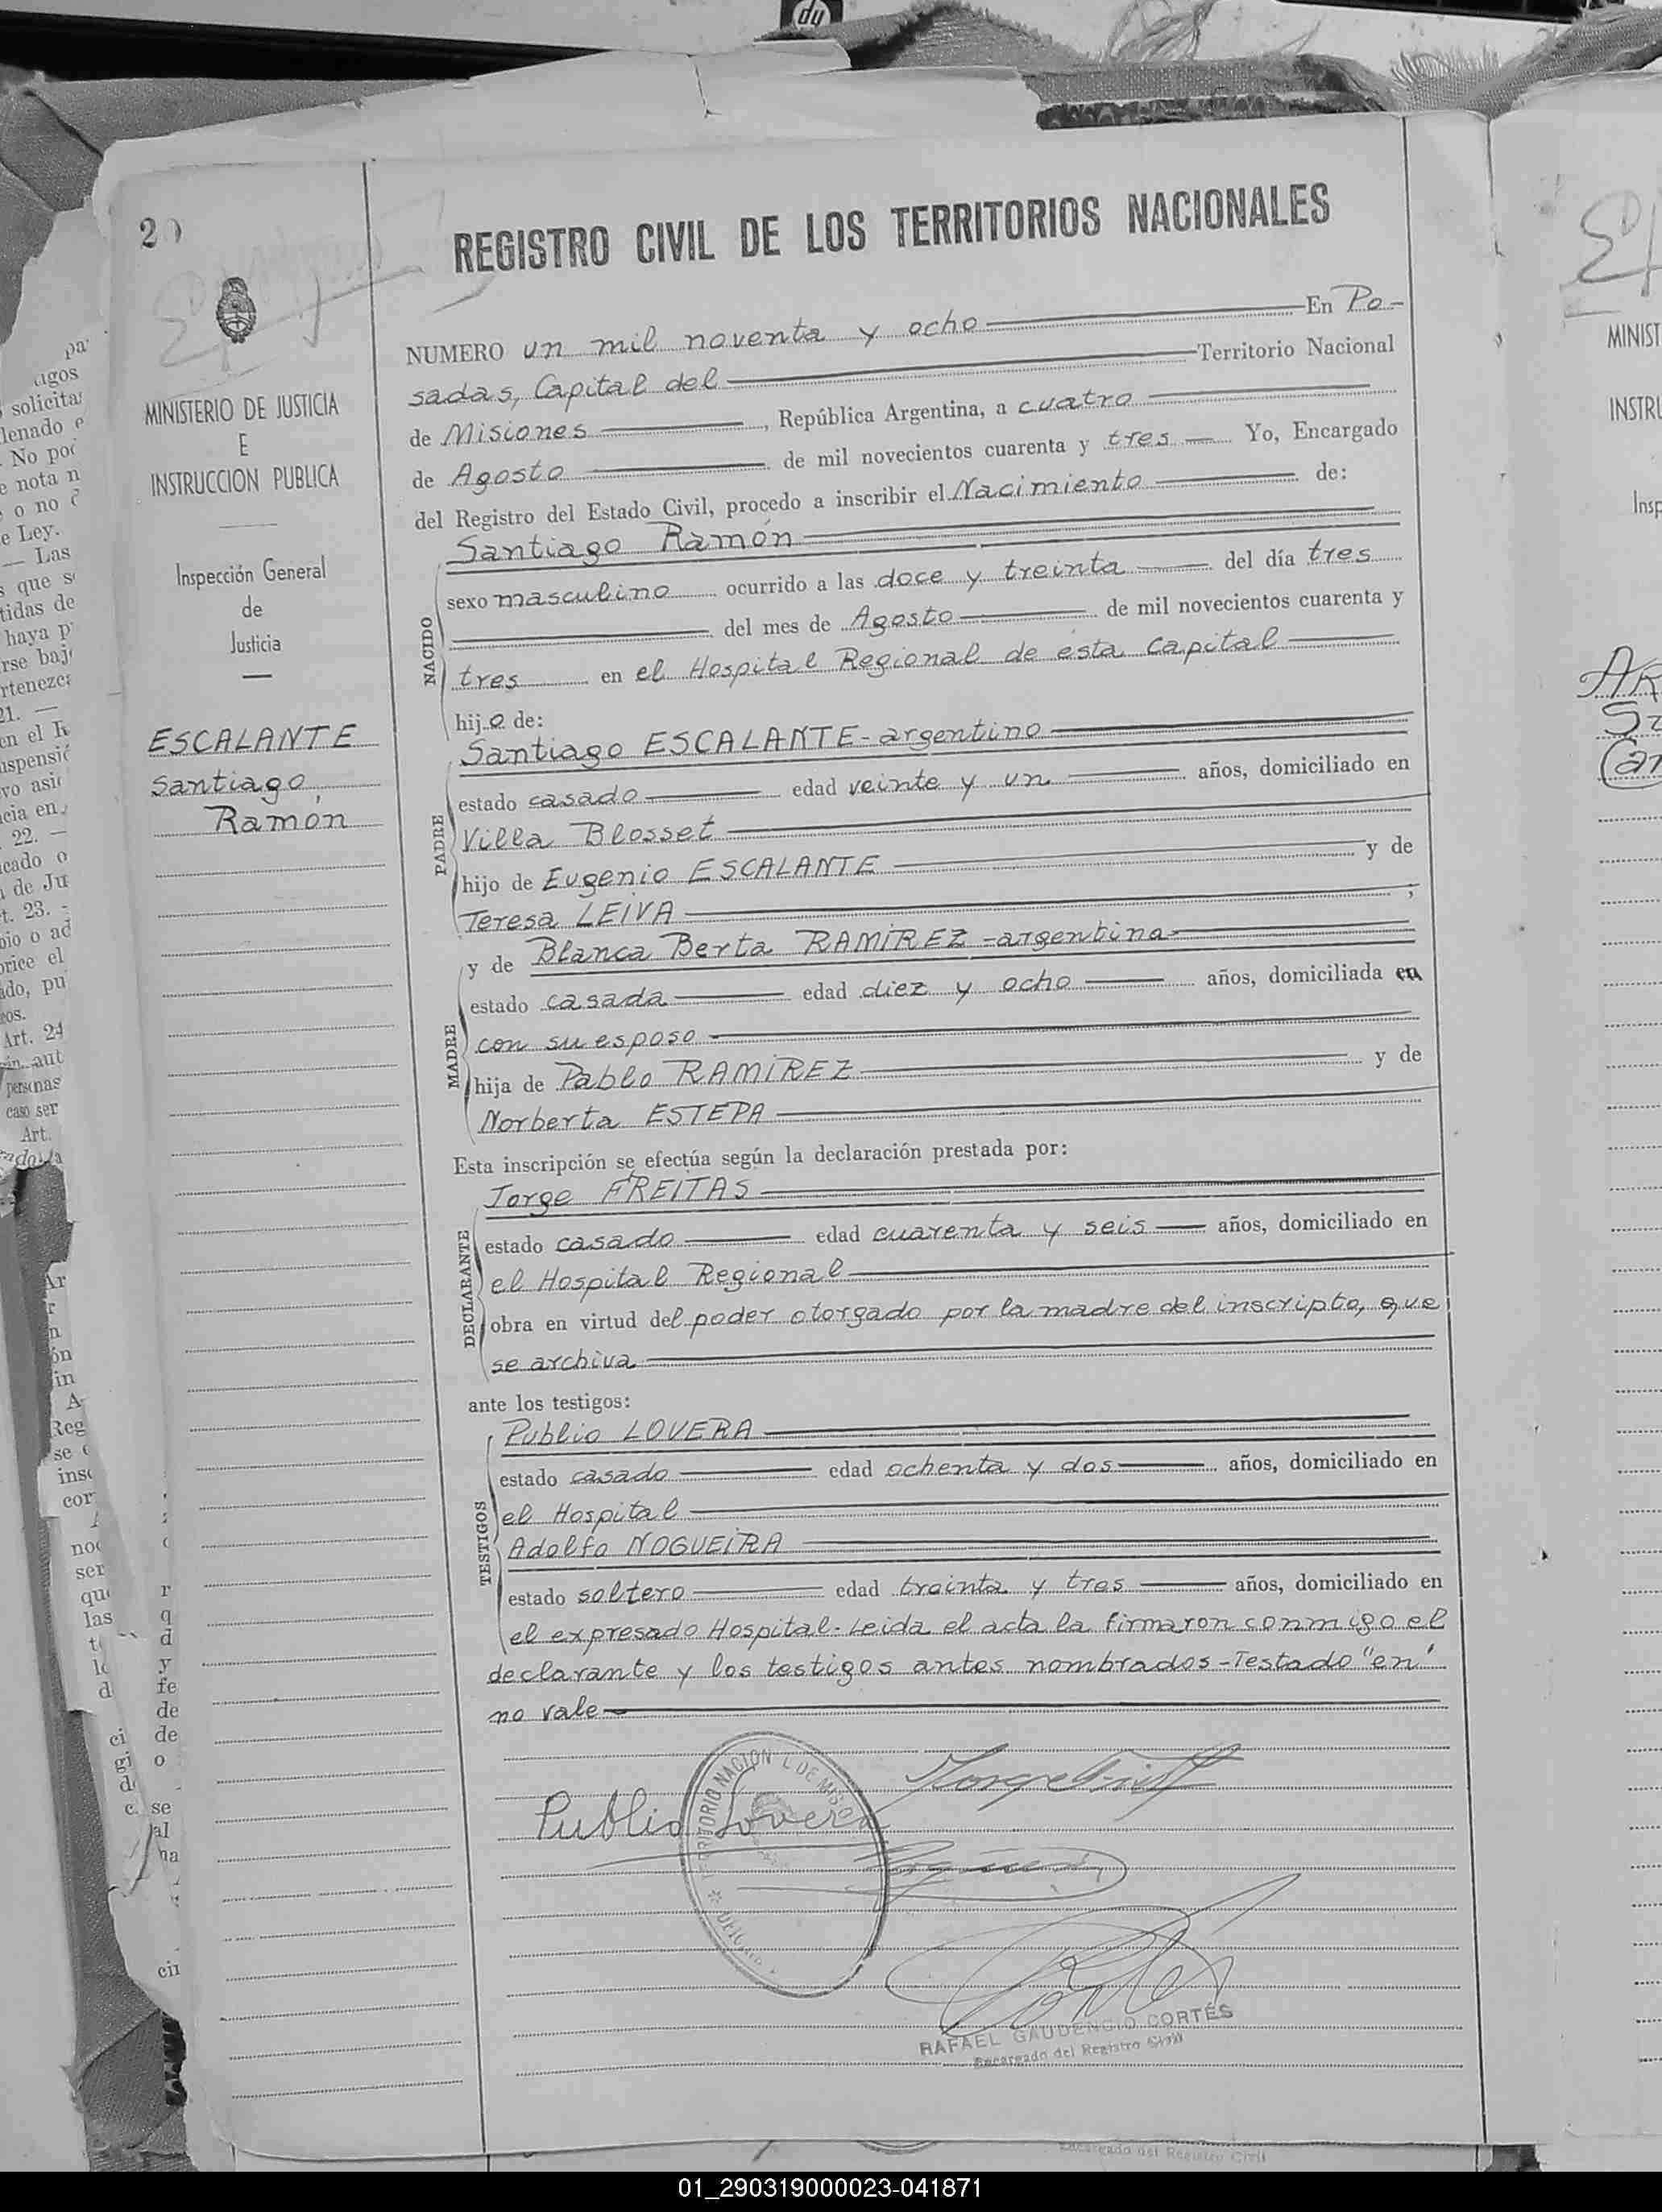 REGISTRO CIVIL DE LOS TERRITORIOS NACIONALES
MINISTERIO DE JUSTICIA
E
INSTRUCCION PUBLICA
Inspección General
de
Justicia
ESCALANTE
Santiago
Ramón
NUMERO un mil noventa y ocho En Po-
sadas, Capital del Territorio Nacional
de Misiones, República Argentina, a cuatro
de Agosto de mil novecientos cuarenta y tres Yo, Encargado
del Registro del Estado Civil, procedo a inscribir el Nacimiento de:
NACIDO
Santiago Ramón
sexo masculino ocurrido a las doce y treinta del día tres
del mes de Agosto de mil novecientos cuarenta y
tres en el Hospital Regional de esta Capital
hijo de:
PADRE
Santiago ESCALANTE - argentino
estado casado edad veinte y un años, domiciliado en
Villa Blosset
hijo de Eugenio ESCALANTE y de
Teresa LEIVA ;
MADRE
y de Blanca Berta RAMIREZ - argentina
estado casada edad diez y ocho años, domiciliada en
con su esposo
hija de Pablo RAMIREZ y de
Norberta ESTEPA
Esta inscripción se efectúa según la declaración prestada por:
DECLARANTE
Jorge FREITAS
estado casado edad cuarenta y seis años, domiciliado en
el Hospital Regional
obra en virtud del poder otorgado por la madre del inscripto, que
se archiva
ante los testigos:
TESTIGOS
Publio LOVERA
estado casado edad ochenta y dos años, domiciliado en
el Hospital
Adolfo NOGUEIRA
estado soltero edad treinta y tres años, domiciliado en
el expresado Hospital - Leida el acta la firmaron conmigo el
declarante y los testigos antes nombrados - Testado "en"
no vale
Publio Lovera
RAFAEL GAUDENCIO CORTÉS
Encargado del Registro Civil
Encargado del Registro Civil
01_290319000023-041871